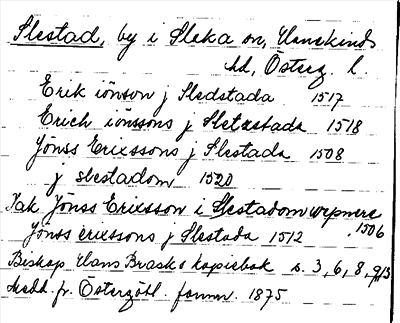 Slestad, by i Slaka sn, Hanekinds
hd, Österg. l.
Erik iönson j Sledstada 1517
Erich iönssons j Sletzstada 1518
Jönss Erixssons j Slestada 1508
j slestadom 1520
Jak Jönss Ericsson i Slestadom wepnere 1506
Jönss erixssons j Slestada 1512
Biskop Hans Brasks kopiebok s. 3, 6, 8, 9, 13
Medd. fr. Östergötl. fornm. 1875